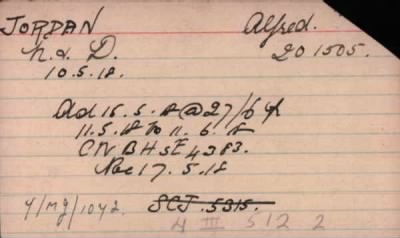 JORDAN Alfred.
N. & D. 201505.
10.5.18.
Ad 15.5.18 @ 27/6
11.5.18 to 11.6.18
CN BHSE 4383.
17.5.18
4/MG/1042. SCJ.5315.
4 III 512 2